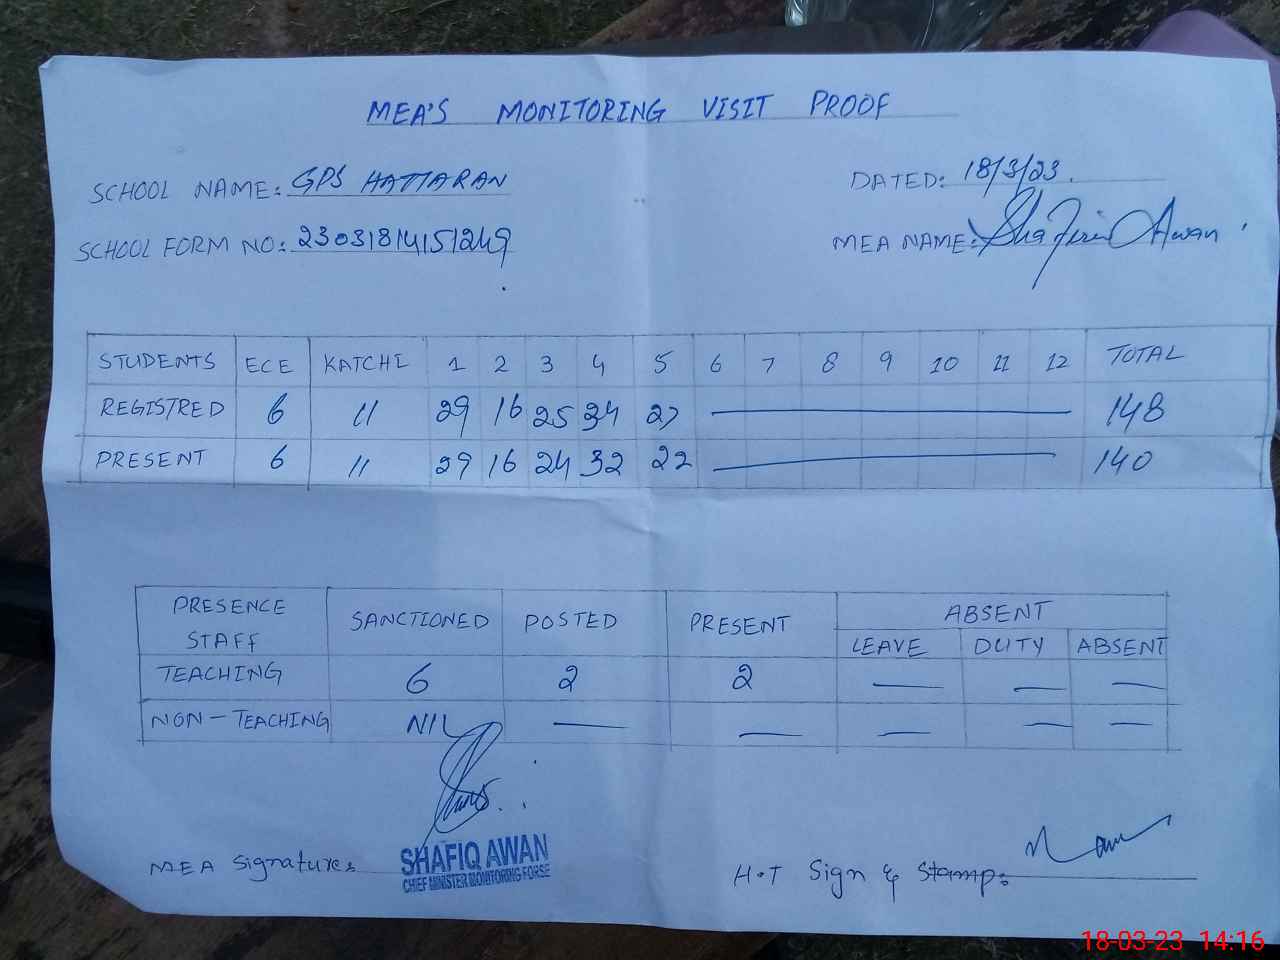 MEA'S MONITORING VISIT PROOF
SCHOOL NAME: GPS HATTARAN DATED: 18/3/23
SCHOOL FORM NO: 23031814151249 MEA NAME: Shafiq Awan
STUDENTS ECE KATCHI 1 2 3 4 5 6 7 8 9 10 11 12 TOTAL
REGISTRED 6 11 29 16 25 34 27 148
PRESENT 6 11 29 16 24 32 22 140
PRESENCE STAFF SANCTIONED POSTED PRESENT ABSENT
LEAVE DUTY ABSENT
TEACHING 6 2 2 — — —
NON-TEACHING NIL — — — — —
MEA Signature: SHAFIQ AWAN
CHIEF MINISTER MONITORING FORSE
H.T Sign & Stamp:
18-03-23 14:16